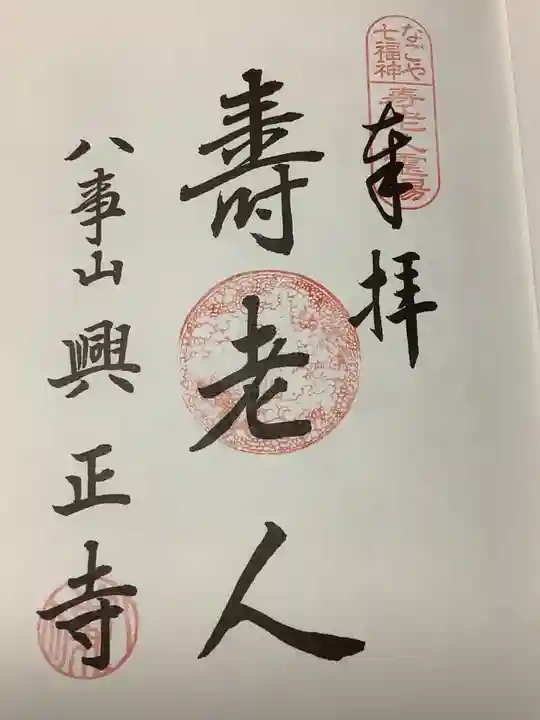 なごや
七福神
寿老人霊場
奉拝
壽老人
八事山 興正寺